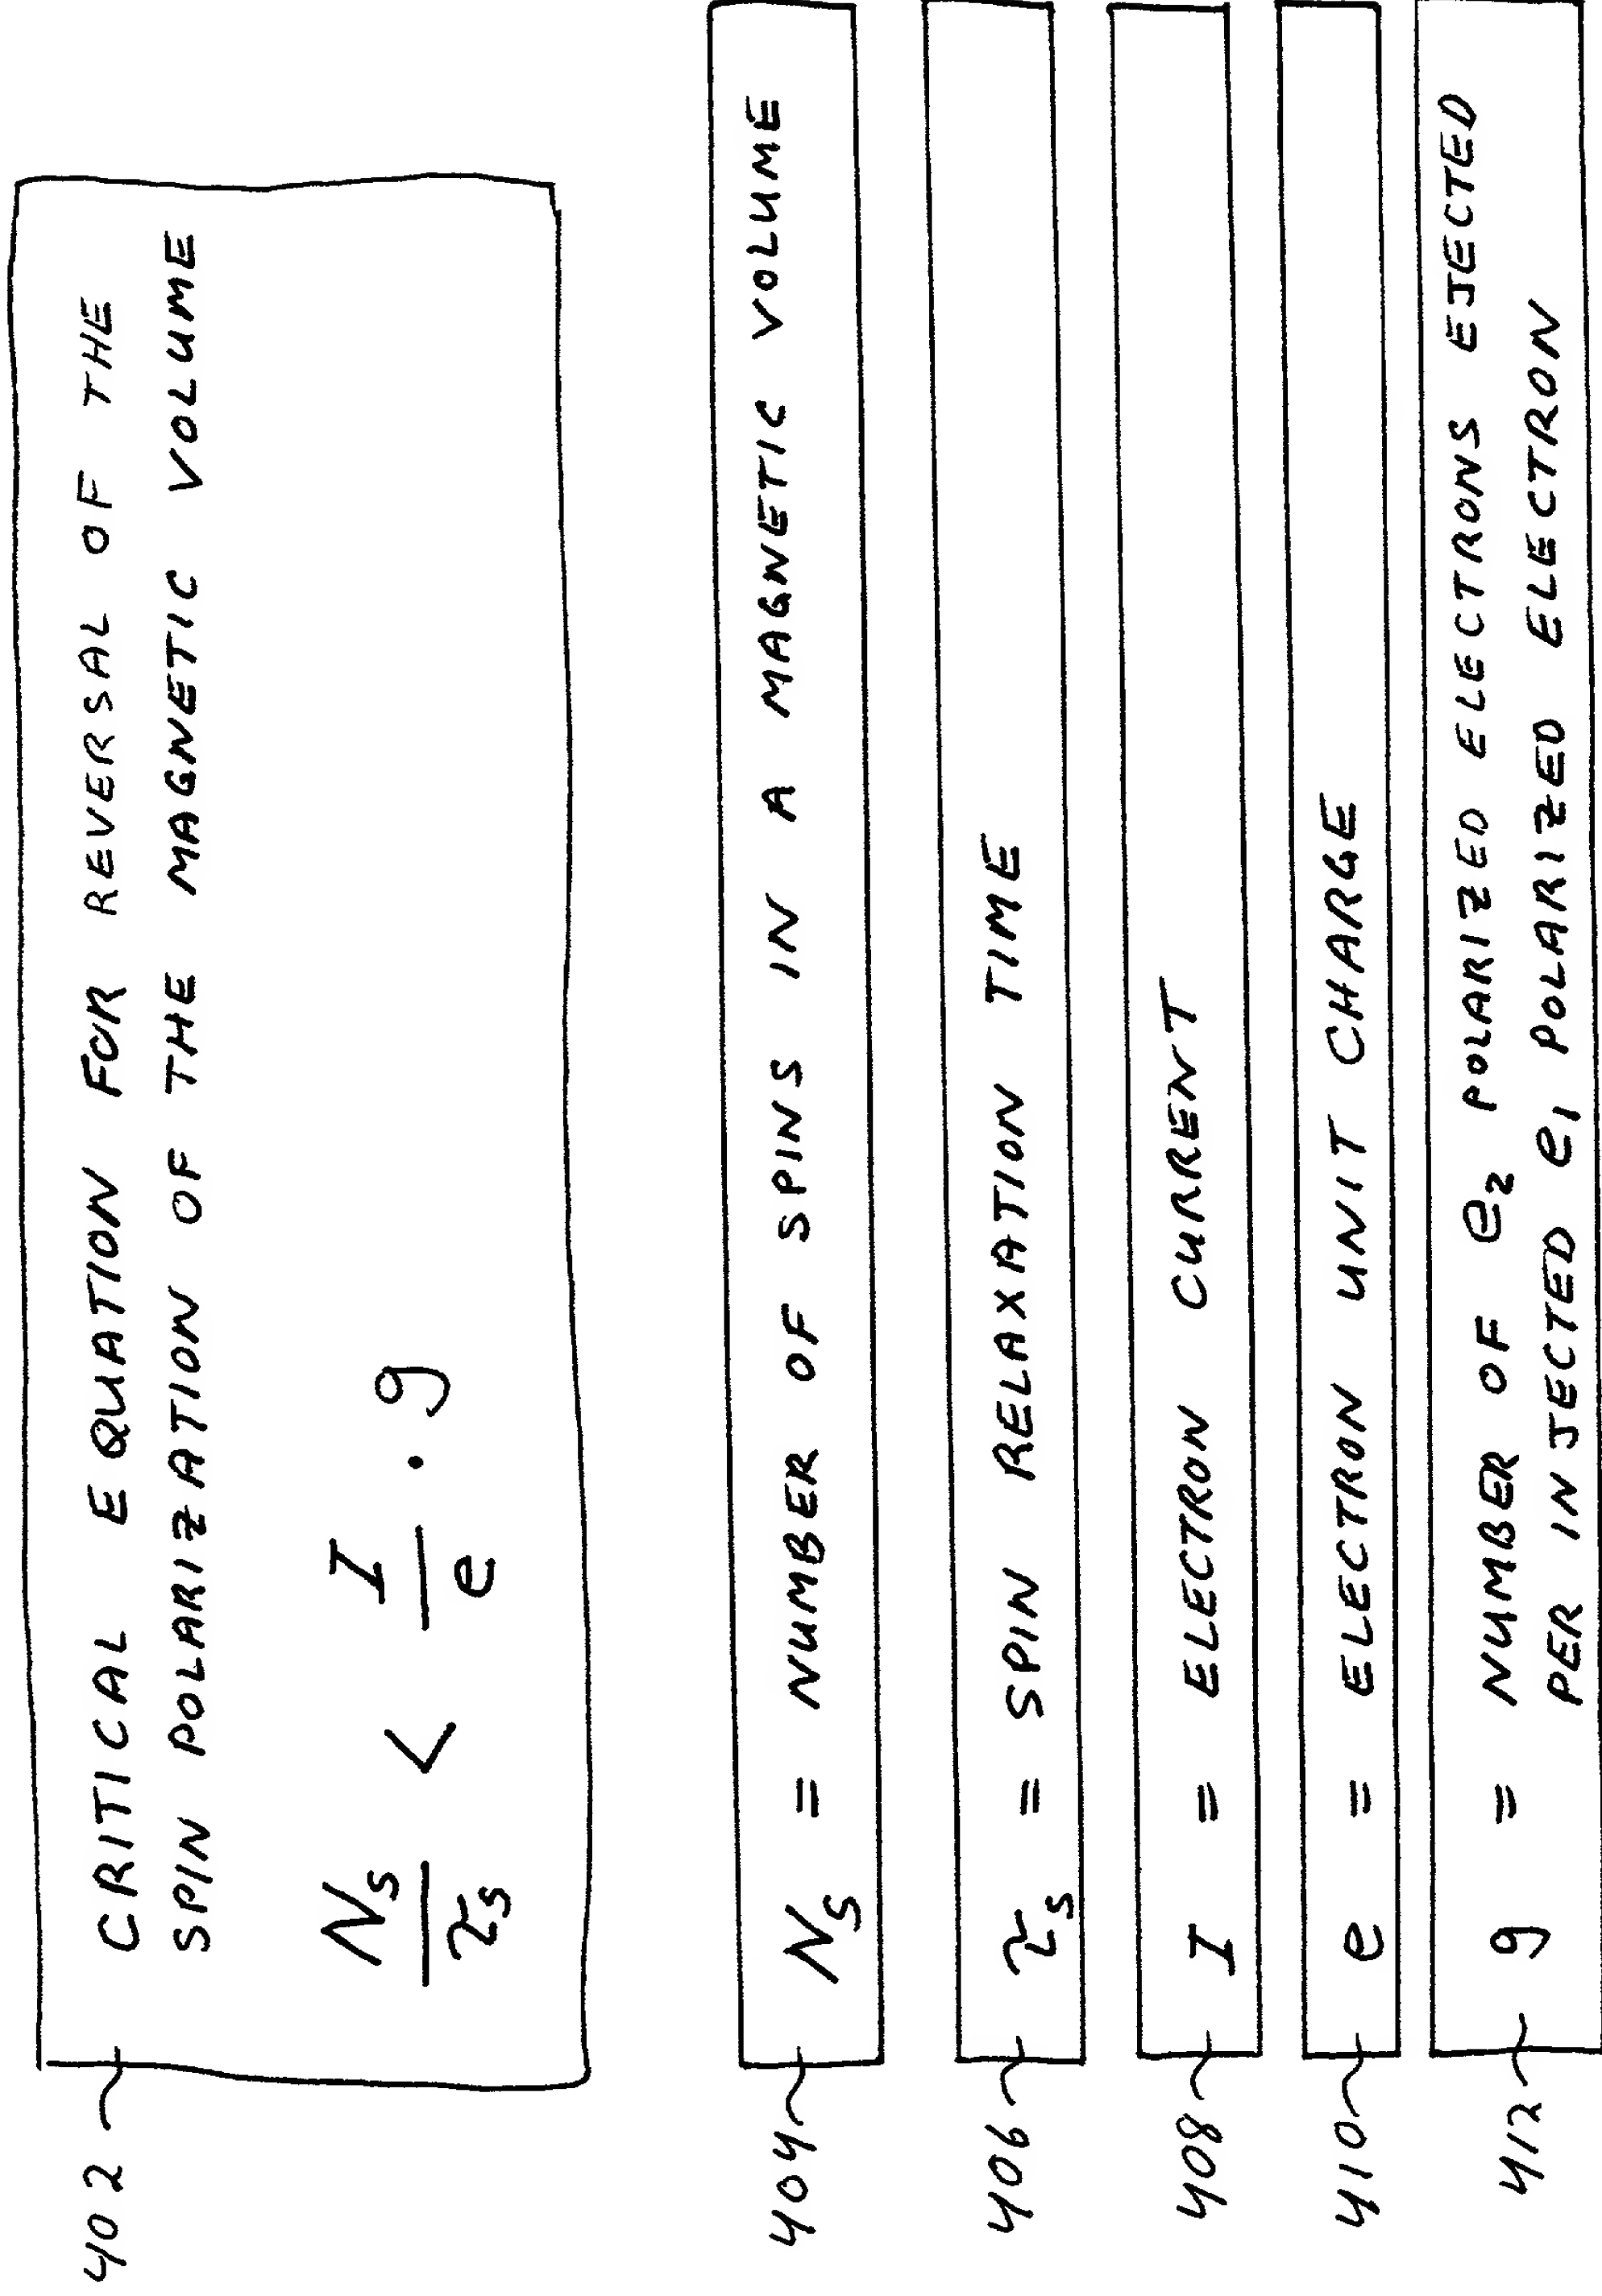 402 CRITICAL EQUATION FOR REVERSAL OF THE
SPIN POLARIZATION OF THE MAGNETIC VOLUME
N_s/τ_s < I/e · g
404 N_s = NUMBER OF SPINS IN A MAGNETIC VOLUME
406 τ_s = SPIN RELAXATION TIME
408 I = ELECTRON CURRENT
410 e = ELECTRON UNIT CHARGE
412 g = NUMBER OF e₂ POLARIZED ELECTRONS EJECTED
PER INJECTED e₁ POLARIZED ELECTRON